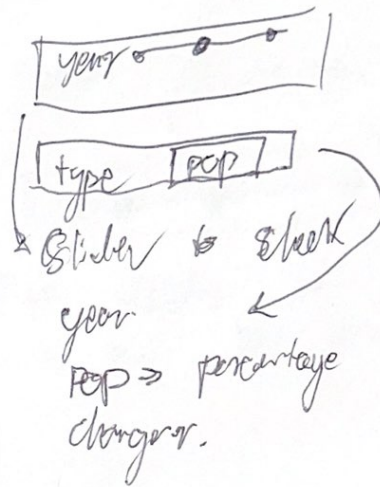 year
type pop
Slider to select
year.
pop => percentage
changer.